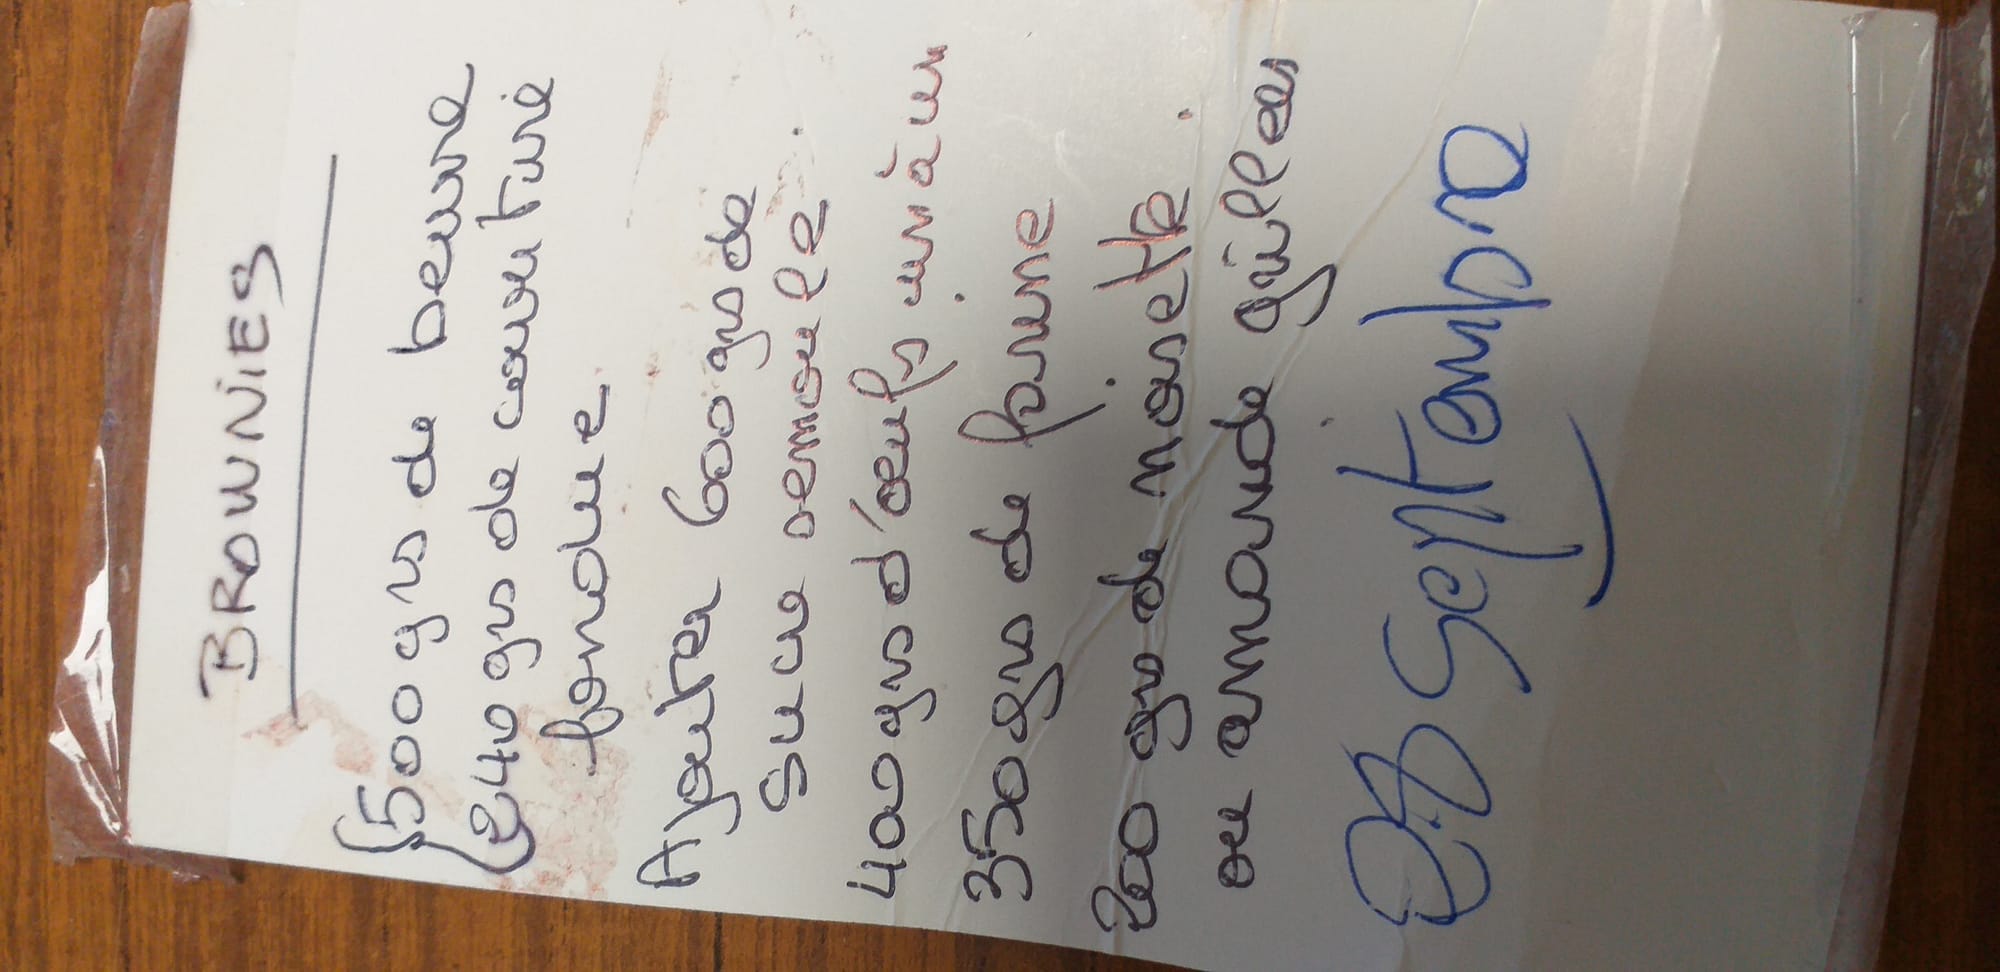 BROWNIES
500 grs de beurre
240 grs de couverture
fondue
Ajouter 600 grs de
sucre semoule.
400 grs d'œufs un à un
350 grs de farine
200 grs de noisette.
ou amande grillées
28 Septembre